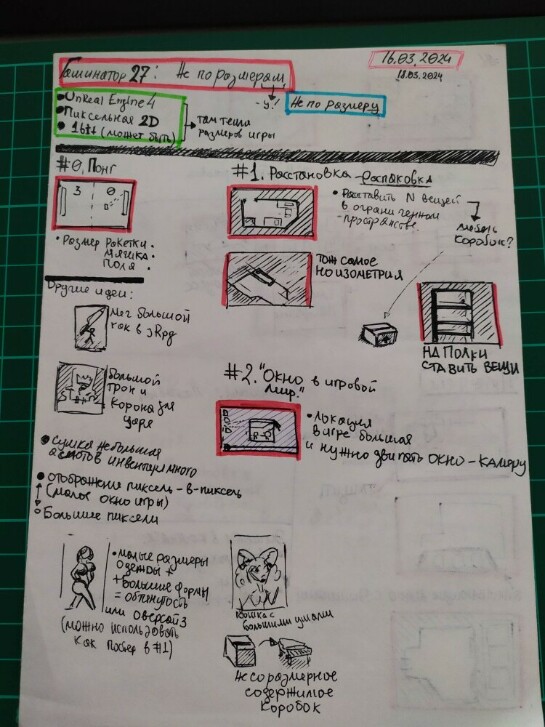 16.03.2024
18.03.2024
Гаминатор 27: Не по размерам
Не по размеру
• Unreal Engine 4
• Пиксельная 2D
• 16bit (может быть)
там тема
размеров игры
#0. Понг
3 0
• Размер ракетки.
мячика.
поля.
#1. Расстановка-распаковка
• Расставить N вещей
в ограниченном
пространстве.
мебель
коробок?
Тож самое
но изометрия
НА ПОЛКИ
СТАВИТЬ ВЕЩИ
Другие идеи:
Меч большой
как в jRpg
Большой
трон и
корона для
царя
#2. "Окно в игровой
мир."
• Локация
в игре большая
и нужно двигать окно-камеру
• Сумка небольшая
инвентарного
• отображение пиксель-в-пиксель
(малое окно игры)
• Большие пиксели
• малые размеры
одежды +
+ большие формы
= обтянутость
или оверсайз
(можно использовать
как постер в #1)
кошка с
большими ушами
Несоразмерное
содержимое
коробок